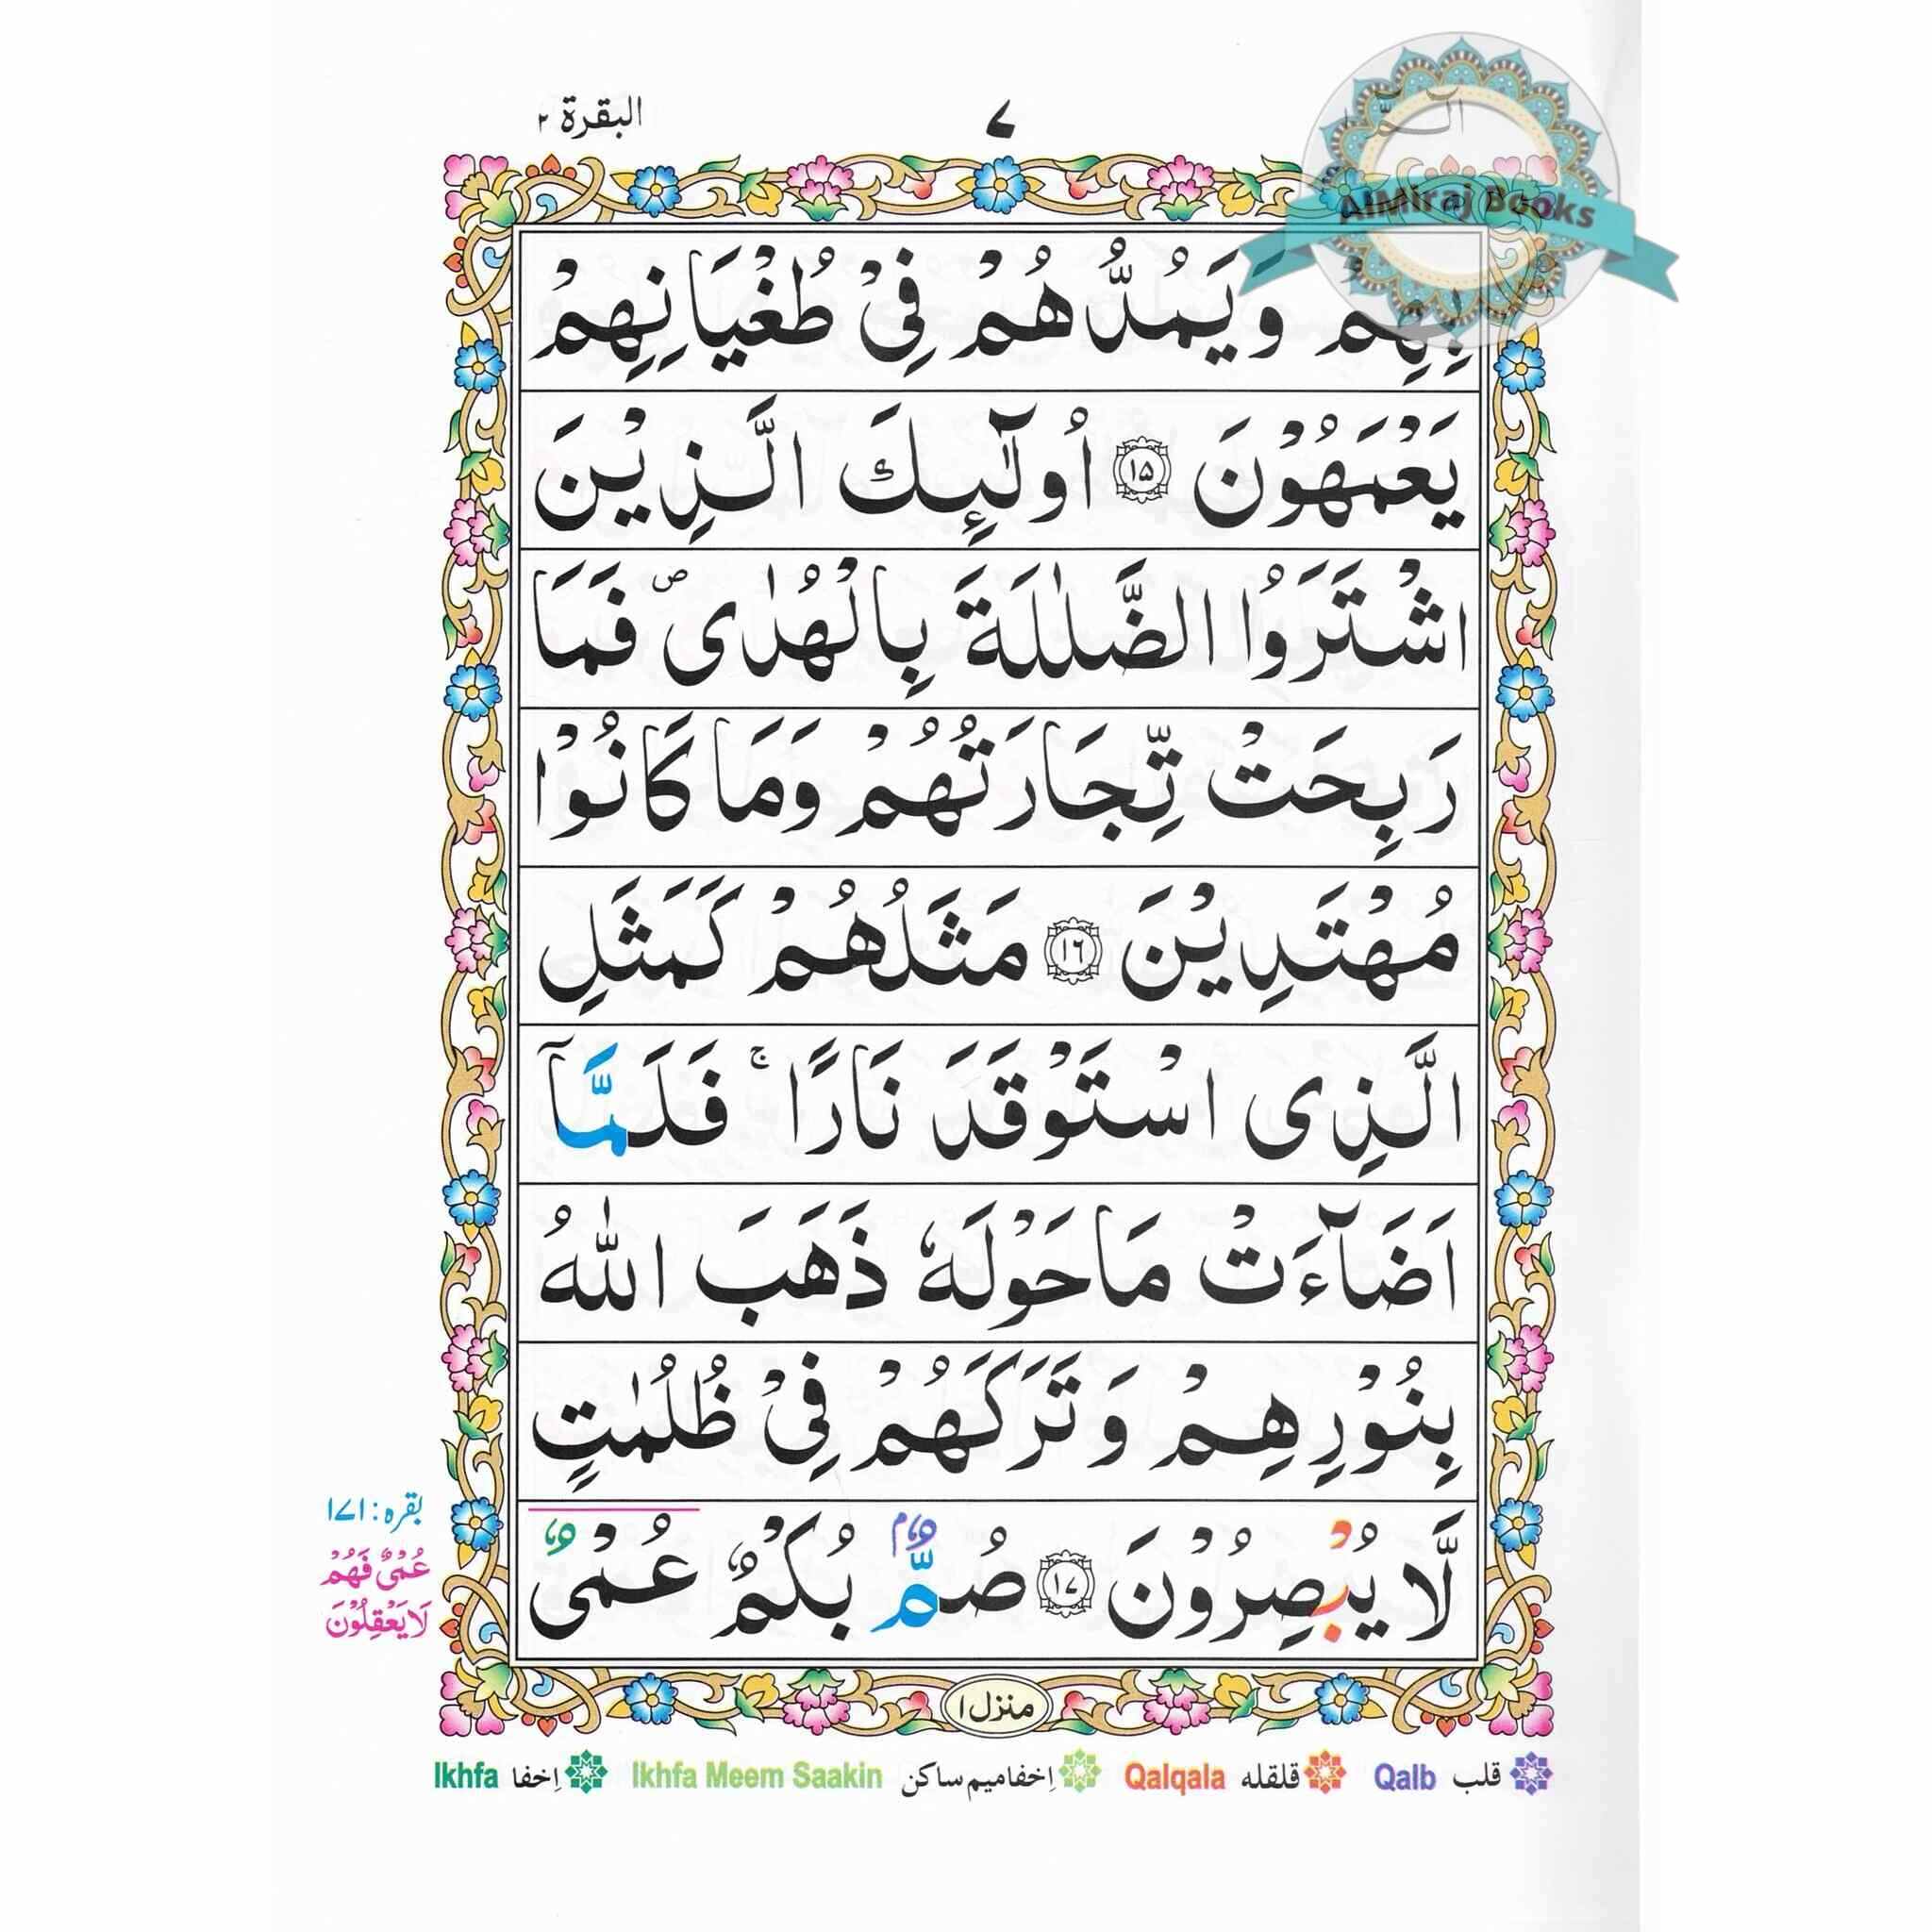 الٓمّٓ
٧
البقرة ٢
AlMiraj Books
بِهِمْ وَيَمُدُّهُمْ فِيْ طُغْيَانِهِمْ
يَعْمَهُوْنَ ۝١٥ اُولٰٓئِكَ الَّذِيْنَ
اشْتَرَوُا الضَّلٰلَةَ بِالْهُدٰى ۪ فَمَا
رَبِحَتْ تِّجَارَتُهُمْ وَمَا كَانُوْا
مُهْتَدِيْنَ ۝١٦ مَثَلُهُمْ كَمَثَلِ
الَّذِى اسْتَوْقَدَ نَارًا ۚ فَلَمَّآ
اَضَآءَتْ مَا حَوْلَهٗ ذَهَبَ اللّٰهُ
بِنُوْرِهِمْ وَتَرَكَهُمْ فِيْ ظُلُمٰتٍ
لَّا يُبْصِرُوْنَ ۝١٧ صُمٌّۢ بُكْمٌ عُمْىٌ
بقره: ١٧١
عُمْىٌ فَهُمْ
لَا يَعْقِلُوْنَ
منزل ١
قلب Qalb قلقله Qalqala اِخفا میم ساکن Ikhfa Meem Saakin اِخفا Ikhfa